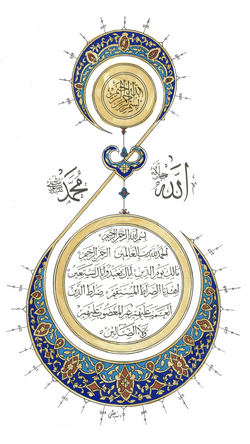 بسم الله الرحمن الرحيم
الله جل جلاله
محمد
بسم الله الرحمن الرحيم
الحمد لله رب العالمين الرحمن الرحيم
مالك يوم الدين إياك نعبد وإياك نستعين
اهدنا الصراط المستقيم صراط الذين
أنعمت عليهم غير المغضوب عليهم
ولا الضالين